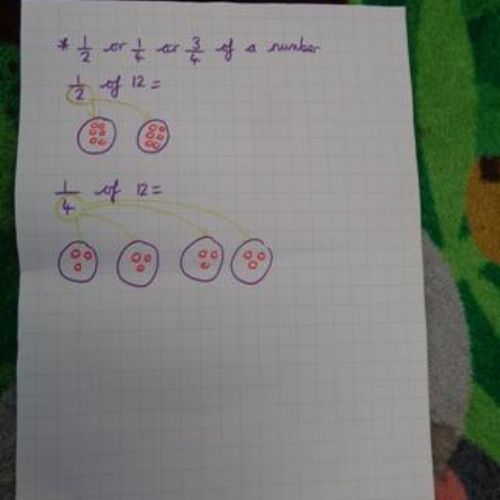 * 1/2 or 1/4 or 3/4 of a number
1/2 of 12 =
1/4 of 12 =